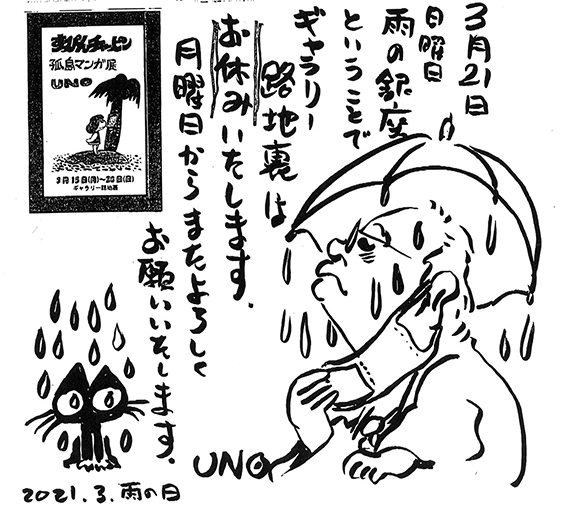 3月21日
日曜日
雨の銀座
ということで
ギャラリー
路地裏は
お休みいたします.
月曜日からまたよろしく
お願いいたします.
孤島マンガ展
UNO
3月15日(月)〜28日(日)
ギャラリー路地裏
UNO
2021.3.雨の日